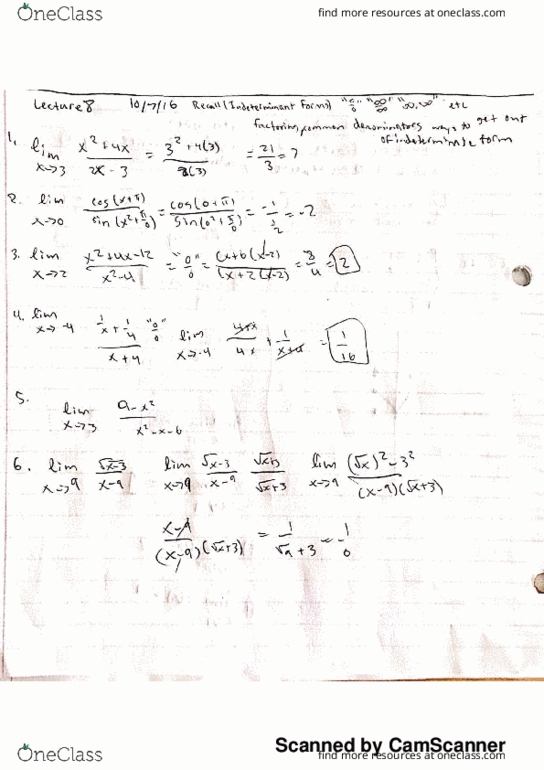 OneClass
find more resources at oneclass.com
Lecture 8 10/7/16 Recall (Indeterminant Forms) "0/0" "∞/∞" "∞,∞" etc
factoring, common denominators ways to get out
of indeterminate form
1. lim x→3 x²+4x / 2x-3 = 3²+4(3) / (3) = 21/3 = 7
2. lim x→0 cos(x+π) / sin(x²+π/6) = cos(0+π) / sin(0²+π/6) = -1 / ½ = -2
3. lim x→2 x²+4x-12 / x²-4 = "0/0" = (x+6)(x-2) / (x+2)(x-2) = 8/4 = 2
4. lim x→-4 1/x + 1/4 / x+4 "0/0" lim x→-4 4+x / 4x · 1 / x+4 = 1/16
5. lim x→3 9-x² / x²-x-6
6. lim x→9 √x-3 / x-9 lim x→9 √x-3 / x-9 √x+3 / √x+3 lim x→9 (√x)²-3² / (x-9)(√x+3)
x-9 / (x-9)(√x+3) = 1 / √9+3 = 1/6
Scanned by CamScanner
OneClass
find more resources at oneclass.com